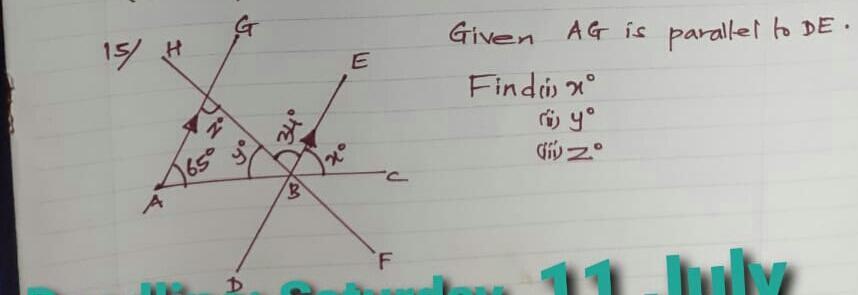 15/ H G E
Given AG is parallel to DE.
Find (i) x°
(ii) y°
(iii) z°
z° 34°
65° y° x°
A B C
D F
11 July